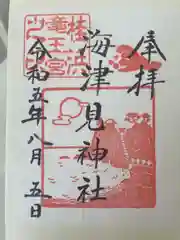 奉拝
海津見神社
桂浜
竜王宮
令和五年八月五日